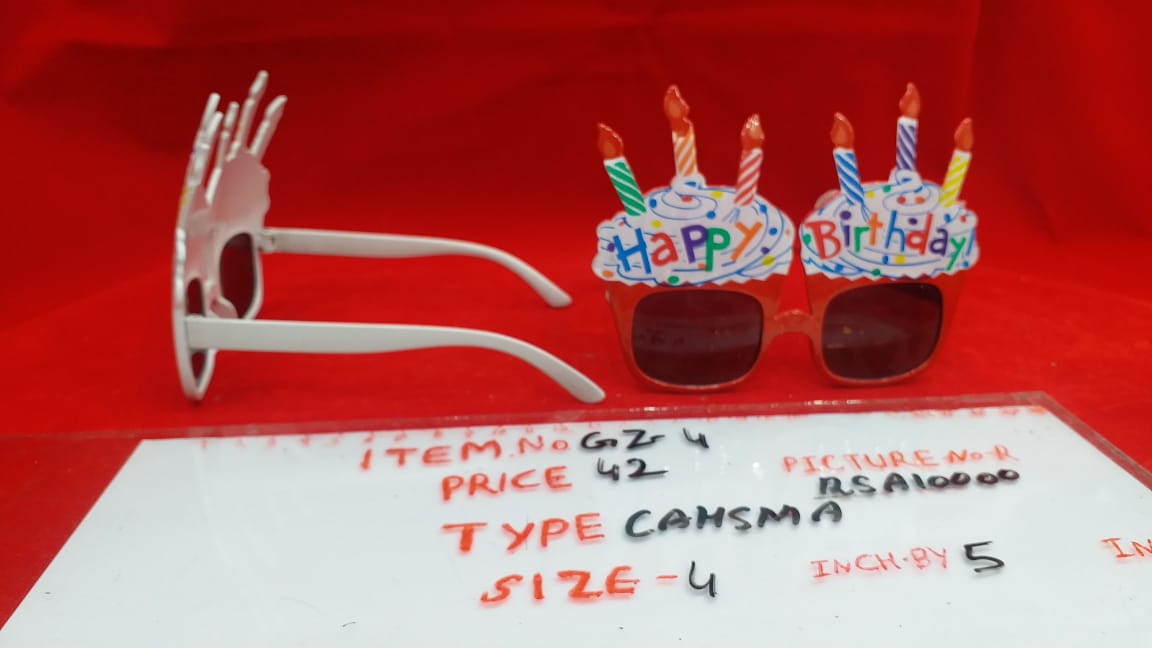 Happy Birthday!
ITEM.No GZ 4
PRICE 42
PICTURE No-R
RSA10000
TYPE CAHSMA
SIZE-4 INCH-BY 5 IN